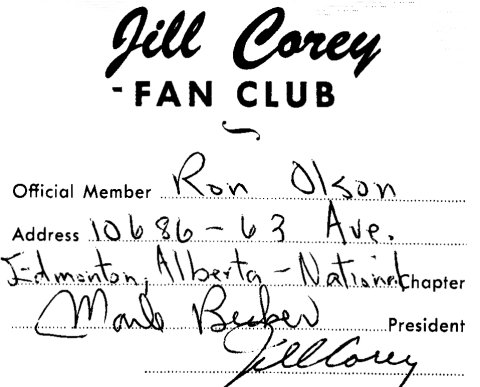 Jill Corey
-FAN CLUB
Official Member Ron Olson
Address 10686-63 Ave.
Edmonton, Alberta - National Chapter
President
Jill Corey